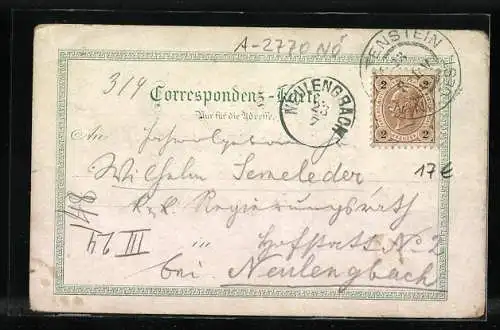 A-2770 NÖ
ENSTEIN
23
319
Correspondenz-Karte
Nur für die Adresse.
NEULENGBACH
23
7
2 2
2 2
17€
An
Wilhelm Semeleder
k. k. Regierungsrath
in Hofstatt No 2
bei Neulengbach